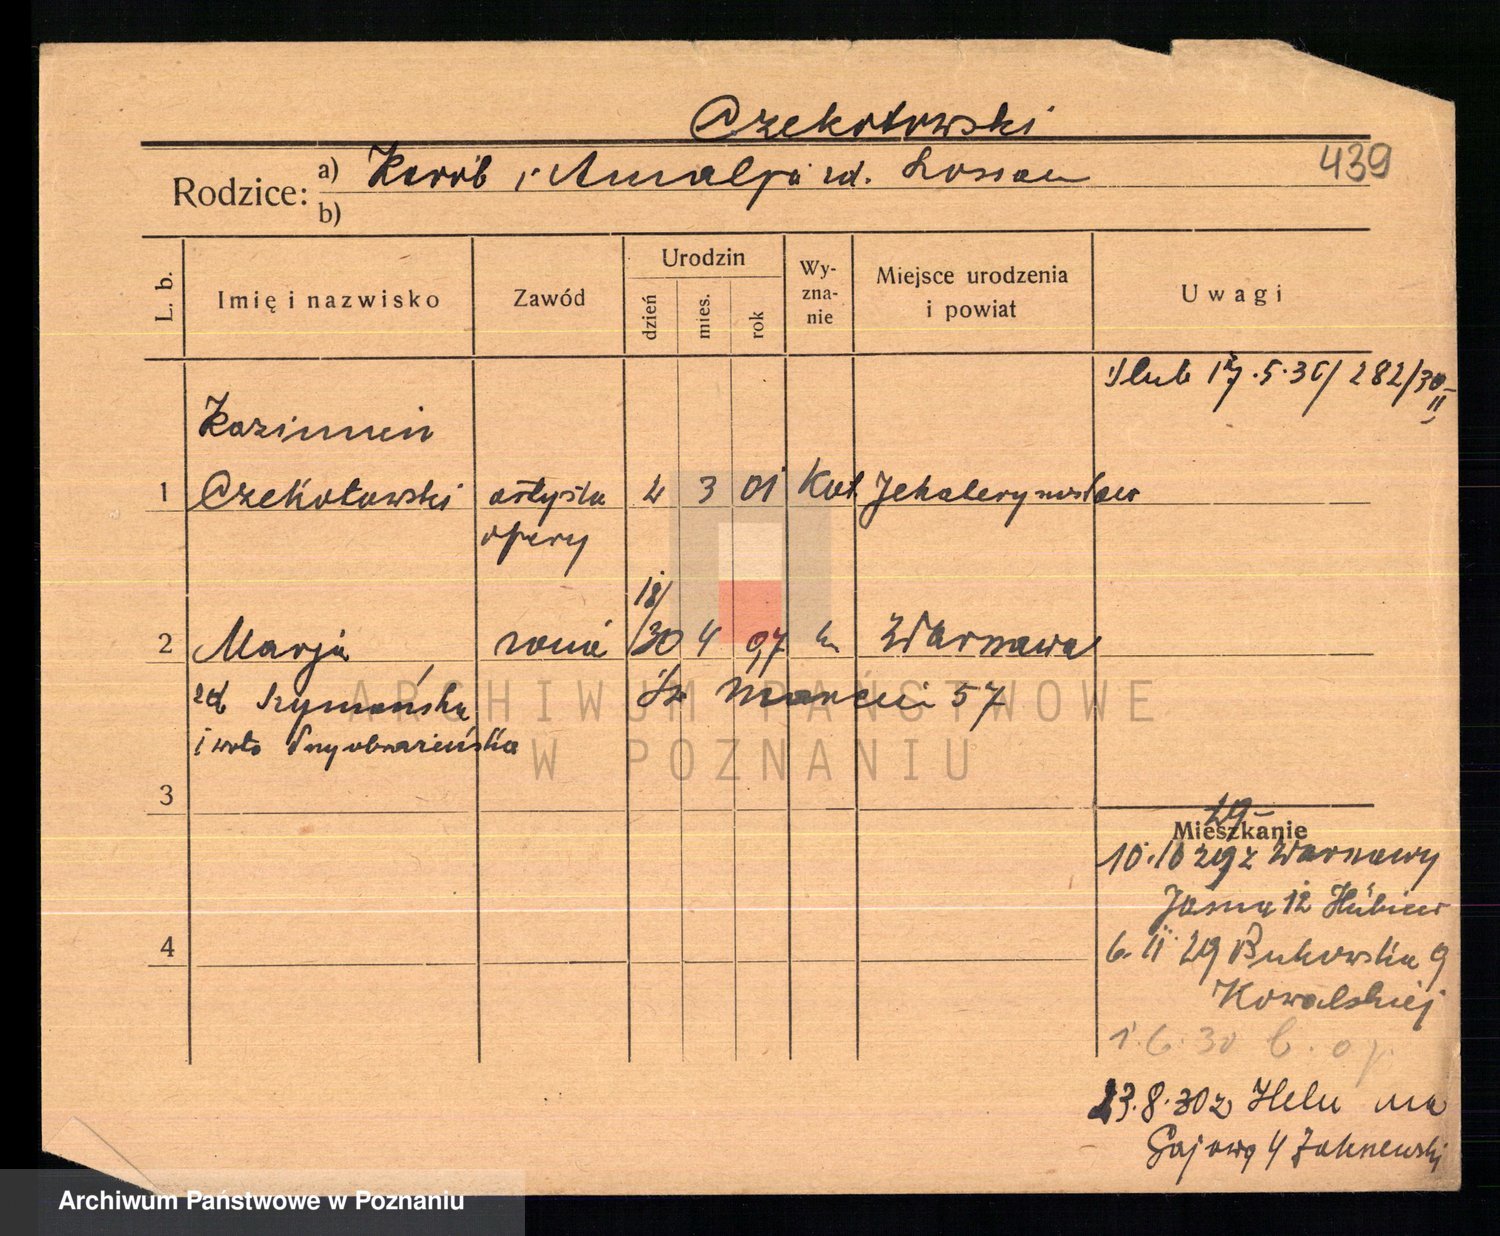 Czekotowski
439
Rodzice: a) Karol i Amalja zd. Lossow
b)
L. b.
Imię i nazwisko
Zawód
Urodzin
dzień
mies.
rok
Wy-
zna-
nie
Miejsce urodzenia
i powiat
Uwagi
Ślub 17.5.30/ 282/30
II
Kazimierz
1 Czekotowski artysta 4 3 01 Kat Jekaterynosław
opery
18/
2 Marja żona 30 4 97 Warszawa
zd Szymańska Św Marcin 57
i voto Przyobrazińska
3
29
Mieszkanie
10.10 29 z Warszawy
Jasna 12
4
6. 11 29 Bukowska 9
Kowalskiej
1.6.30
23.8.30 z Helu na
Gajową 4
ARCHIWUM PAŃSTWOWE
W POZNANIU
Archiwum Państwowe w Poznaniu